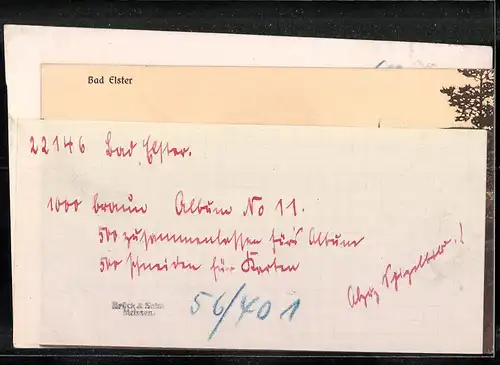 Bad Elster
22146 Bad Elster.
1000 braun Album No 11.
500 zusammenlassen für's Album
500 schneiden für Karten
Abzug
Brück & Sohn
Meissen.
56/401